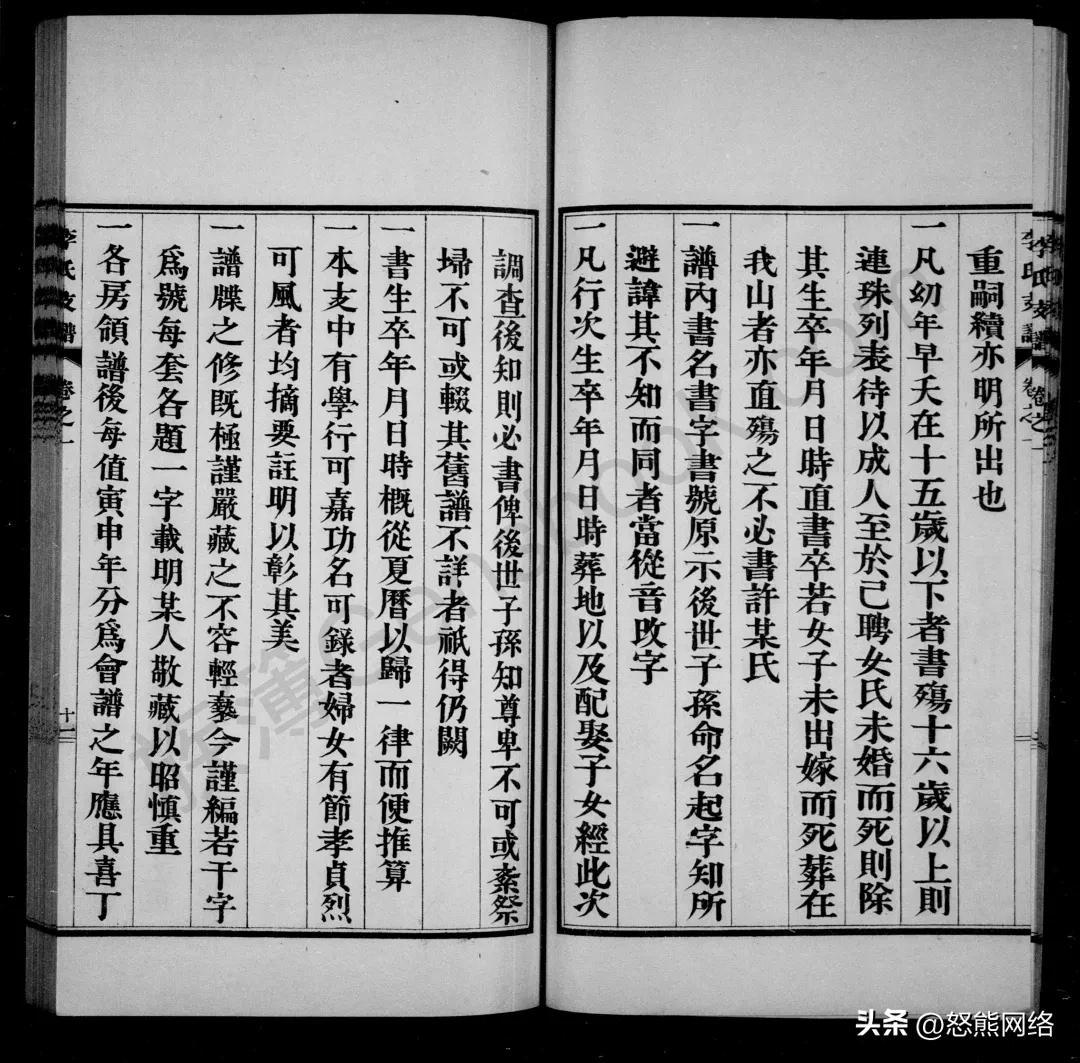 重嗣續亦明所出也
一凡幼年早夭在十五歲以下者書殤十六歲以上則
連珠列表待以成人至於已聘女氏未婚而死則除
其生卒年月日時直書卒若女子未出嫁而死葬在
我山者亦直殤之不必書許某氏
一譜內書名書字書號原示後世子孫命名起字知所
避諱其不知而同者當從音改字
一凡行次生卒年月日時葬地以及配娶子女經此次
調查後知則必書俾後世子孫知尊卑不可或紊祭
埽不可或輟其舊譜不詳者祇得仍闕
一書生卒年月日時概從夏曆以歸一律而便推算
一本支中有學行可嘉功名可錄者婦女有節孝貞烈
可風者均摘要註明以彰其美
一譜牒之修既極謹嚴藏之不容輕褻今謹編若干字
為號每套各題一字載明某人敬藏以昭慎重
一各房領譜後每值寅申年分為會譜之年應具喜丁
李氏支譜 卷之一
十一
族薄Genbook.com
头条 @怒熊网络